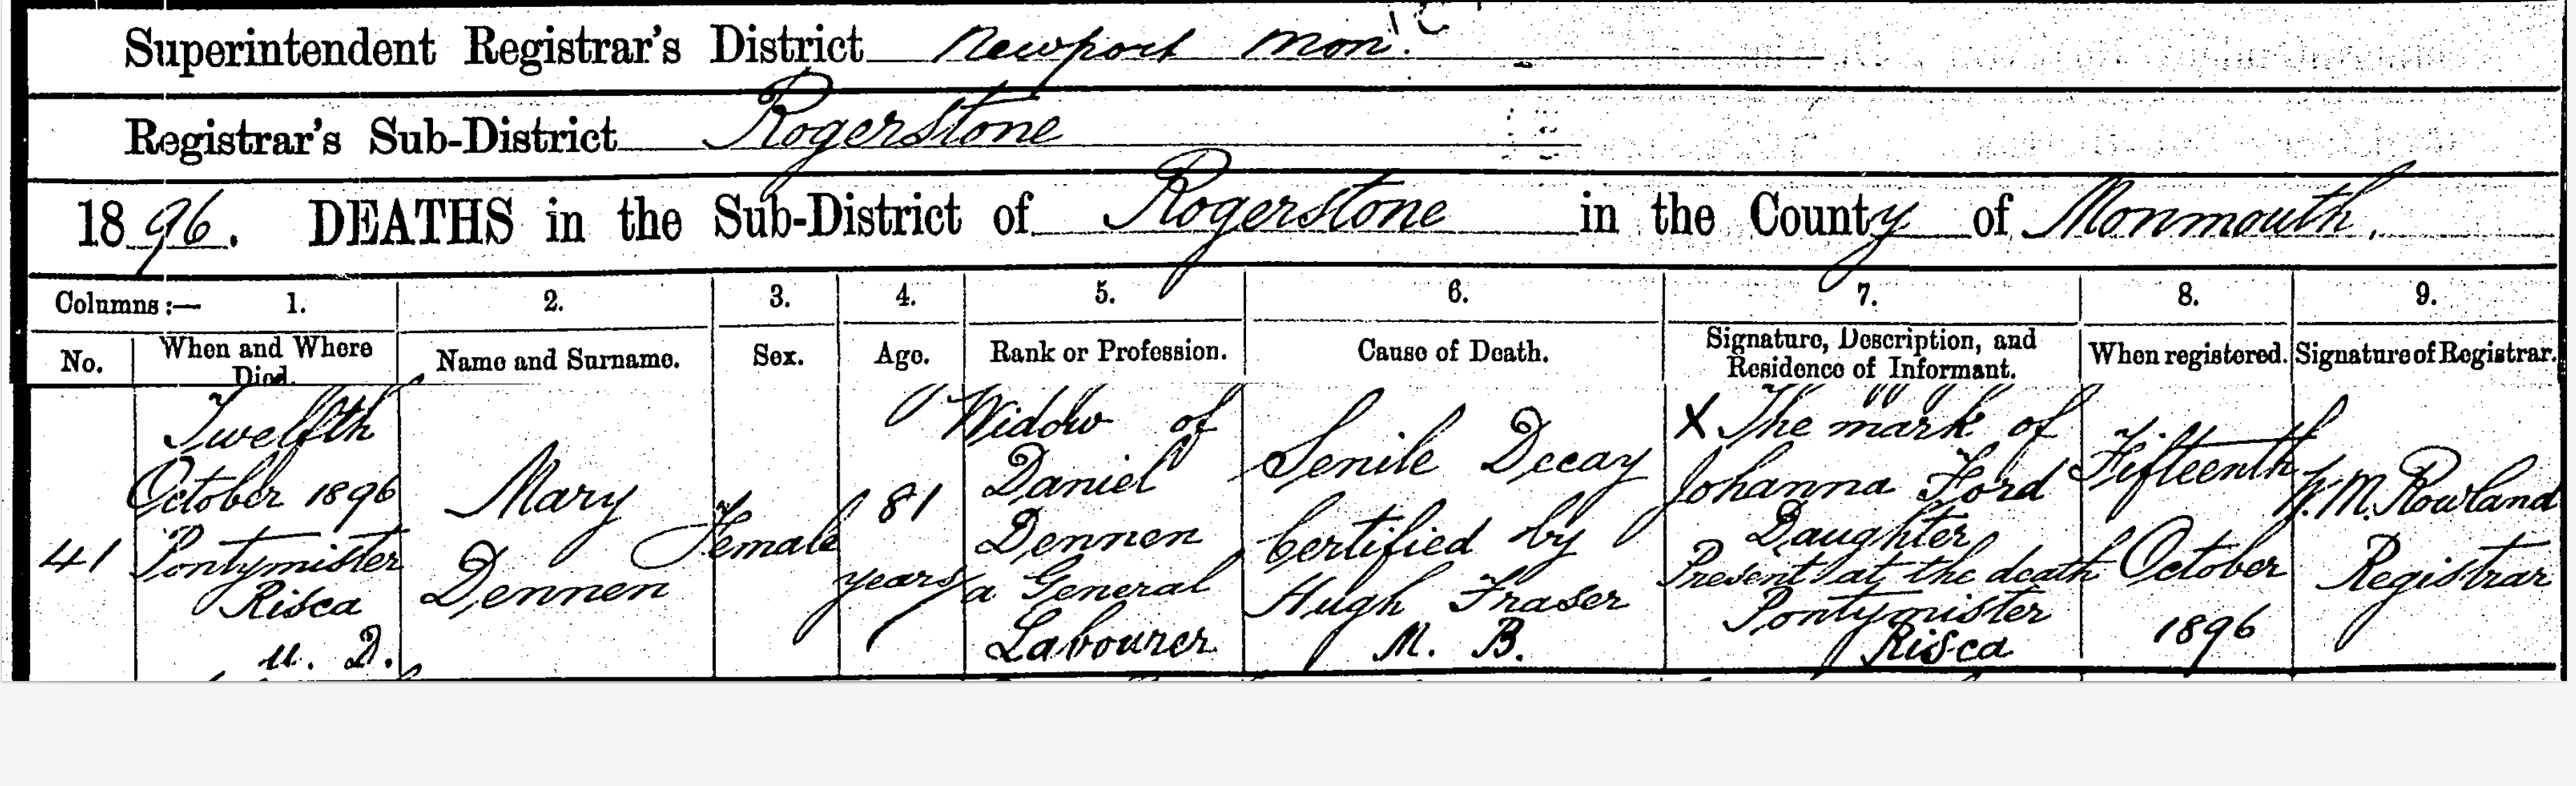 Superintendent Registrar's District Newport Mon.
Registrar's Sub-District Rogerstone
1896. DEATHS in the Sub-District of Rogerstone in the County of Monmouth.
Columns :— 1. 2. 3. 4. 5. 6. 7. 8. 9.
No. When and Where Died. Name and Surname. Sex. Age. Rank or Profession. Cause of Death. Signature, Description, and Residence of Informant. When registered. Signature of Registrar.
41
Twelfth
October 1896
Pontymister
Risca
U. D.
Mary
Dennen
Female
81
years
Widow of
Daniel
Dennen
a General
Labourer
Senile Decay
Certified by
Hugh Fraser
M. B.
X The mark of
Johanna Ford
Daughter
Present at the death
Pontymister
Risca
Fifteenth
October
1896
M. Rowland
Registrar